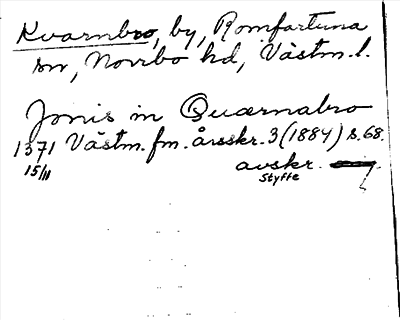 Kvarnbro, by, Romfartuna
sn, Norrbo hd, Västm.l.
Jonis in Quærnabro
1371 Västm.fm. årsskr. 3 (1884) s. 68.
15/11 avskr.
Styffe